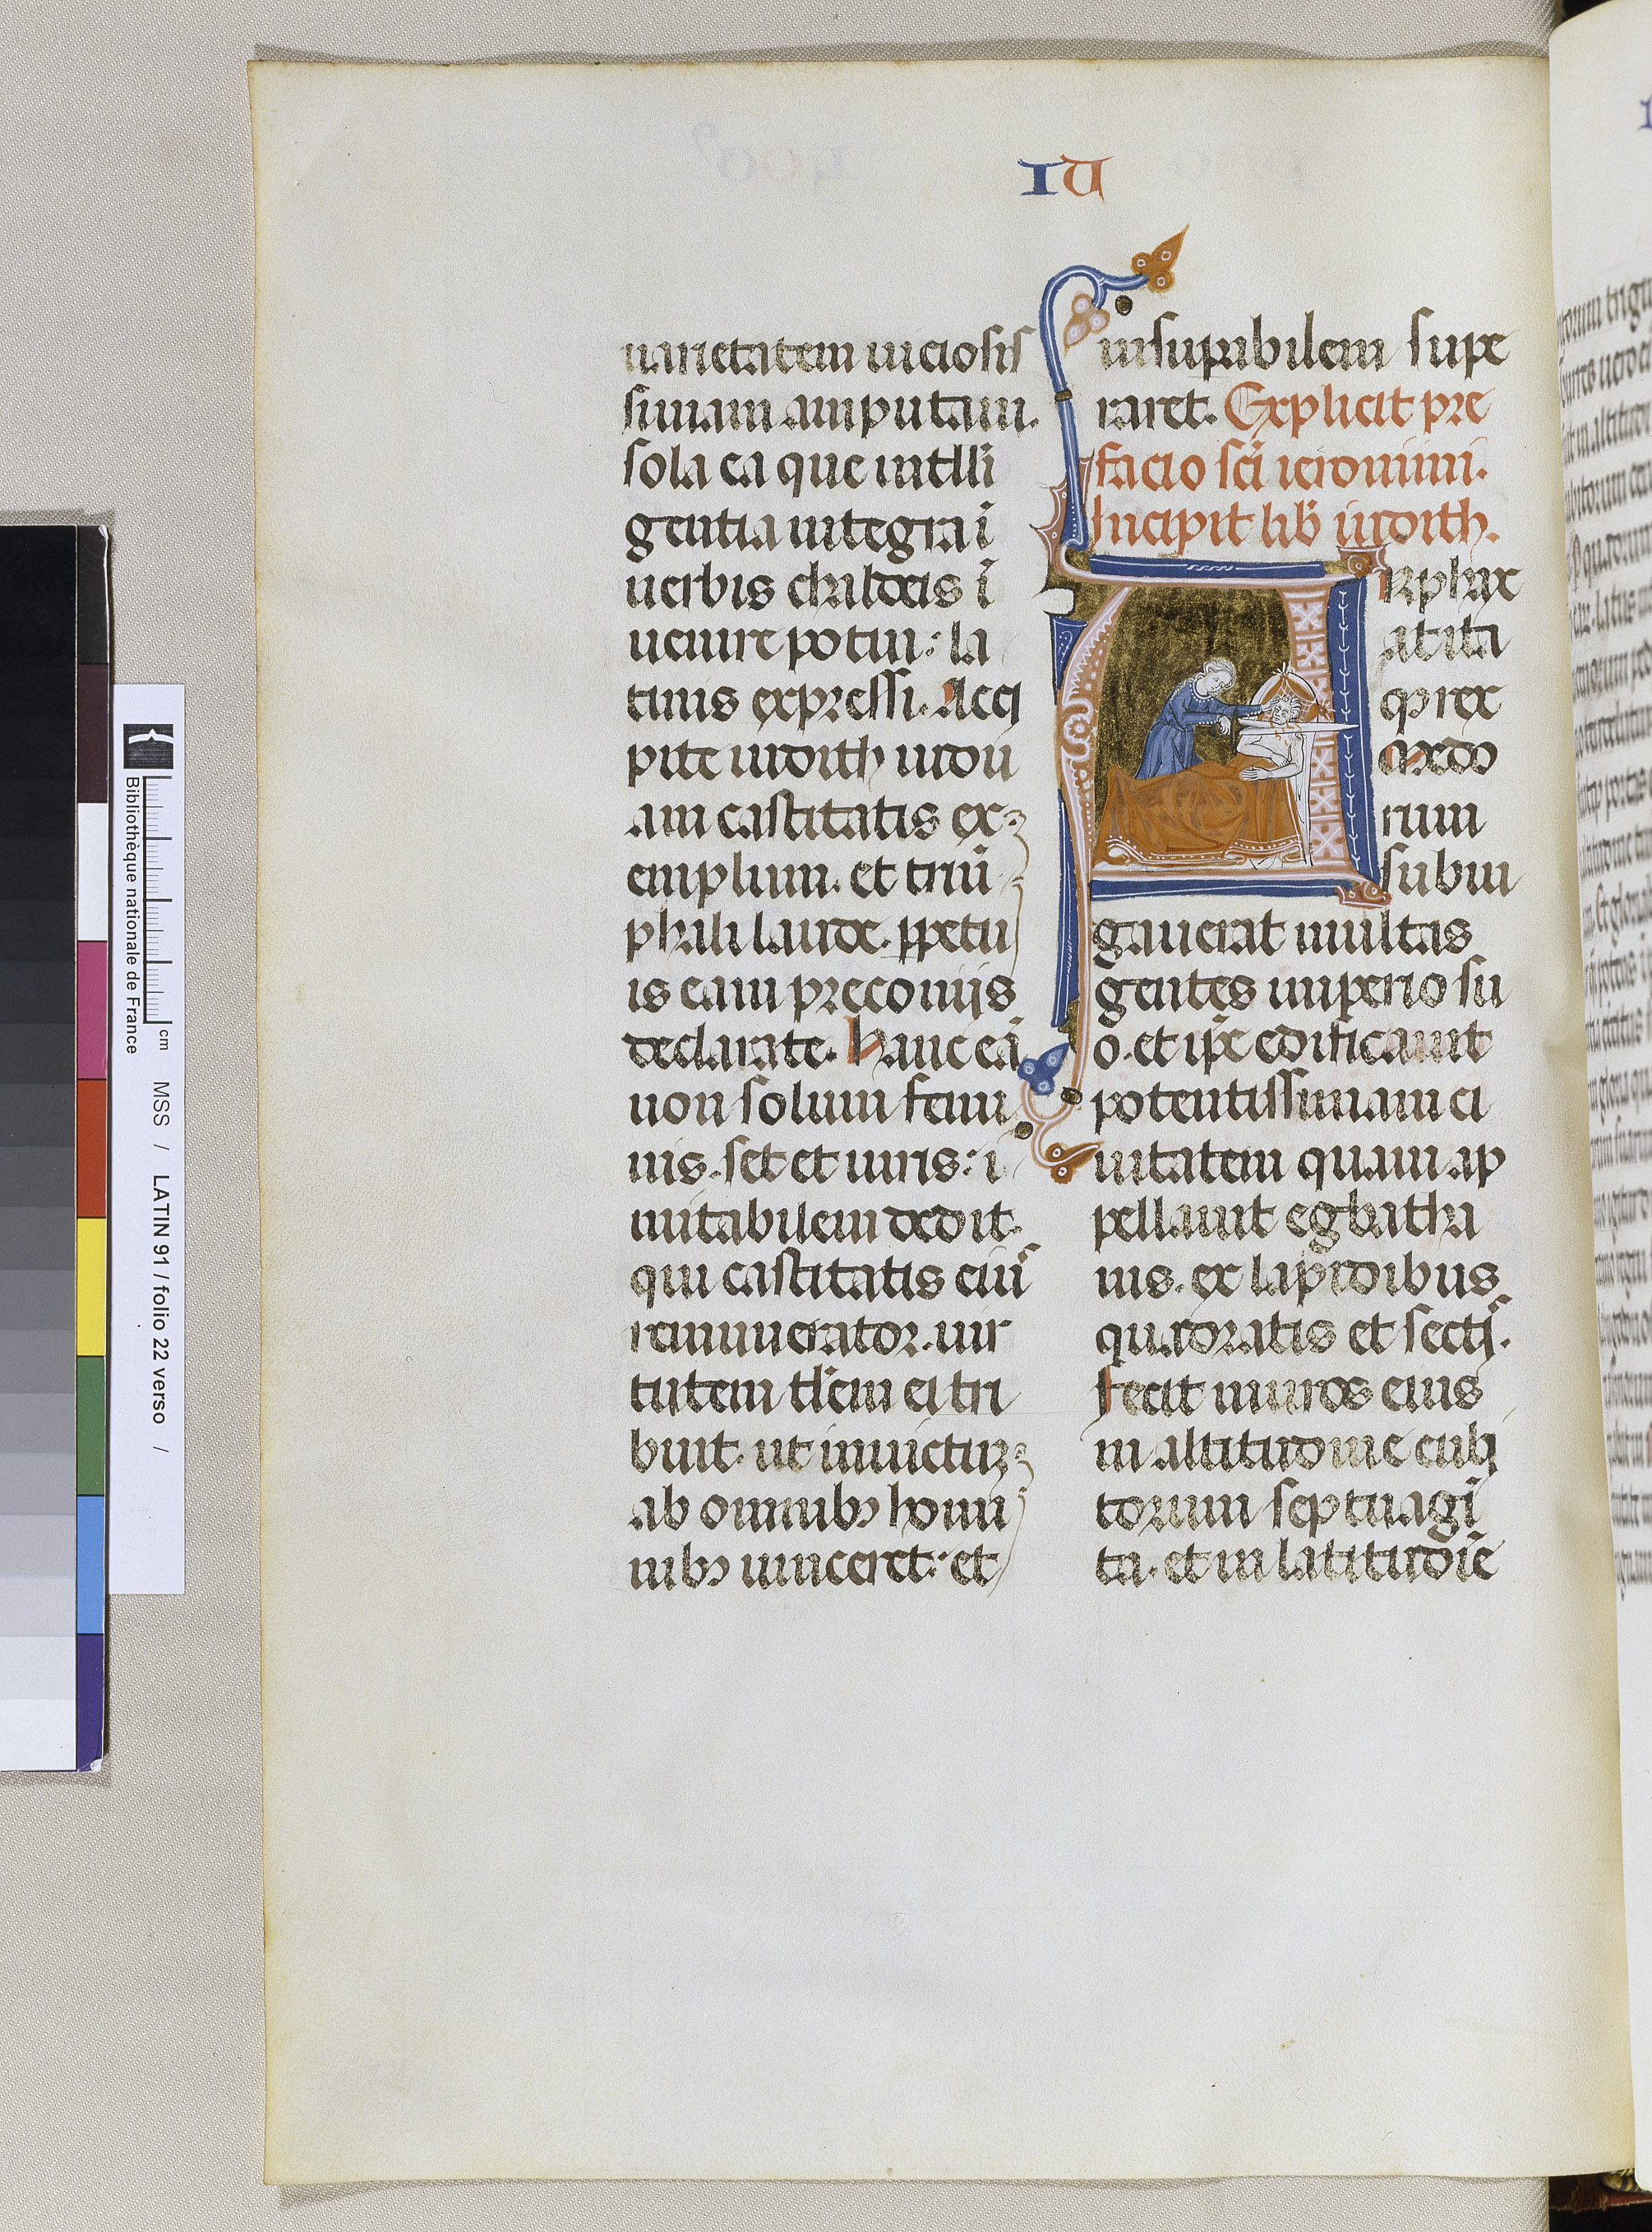 IU
uarietatem uiciosis
simam amputaui.
sola ea que intelli
gentia integra ī
uerbis chaldeis ī
uenire potui: la
tinis expressi. Acci
pite iudith uidu
am castitatis ex
emplum. et triū
phali laude. ꝑpetu
is eam preconijs
declarate. Hanc eī
non solum femi
nis. set et uiris: i
mitabilem dedit.
qui castitatis eius
remunerator. uir
tutem tłem ei tri
buit. ut inuictum
ab omnibꝫ homi
nibꝫ uinceret: et
insuꝑabilem supe
raret. Explicit pre
facio sc̄i ieronimi.
Incipit lib̄ iudith.
Arphax
at ita
qꝫ rex
medo
rum
subiu
gauerat multas
gentes imperio su
o. et ip̄e edificauit
potentissimam ci
uitatem quam ap
pellauit egbatha
nis. ex lapidibus
quadratis et sectis.
fecit muros eius
in altitudine cubi
torum septuagī
ta. et in latitudīe
Bibliothèque nationale de France
cm
MSS / LATIN 91 / folio 22 verso /